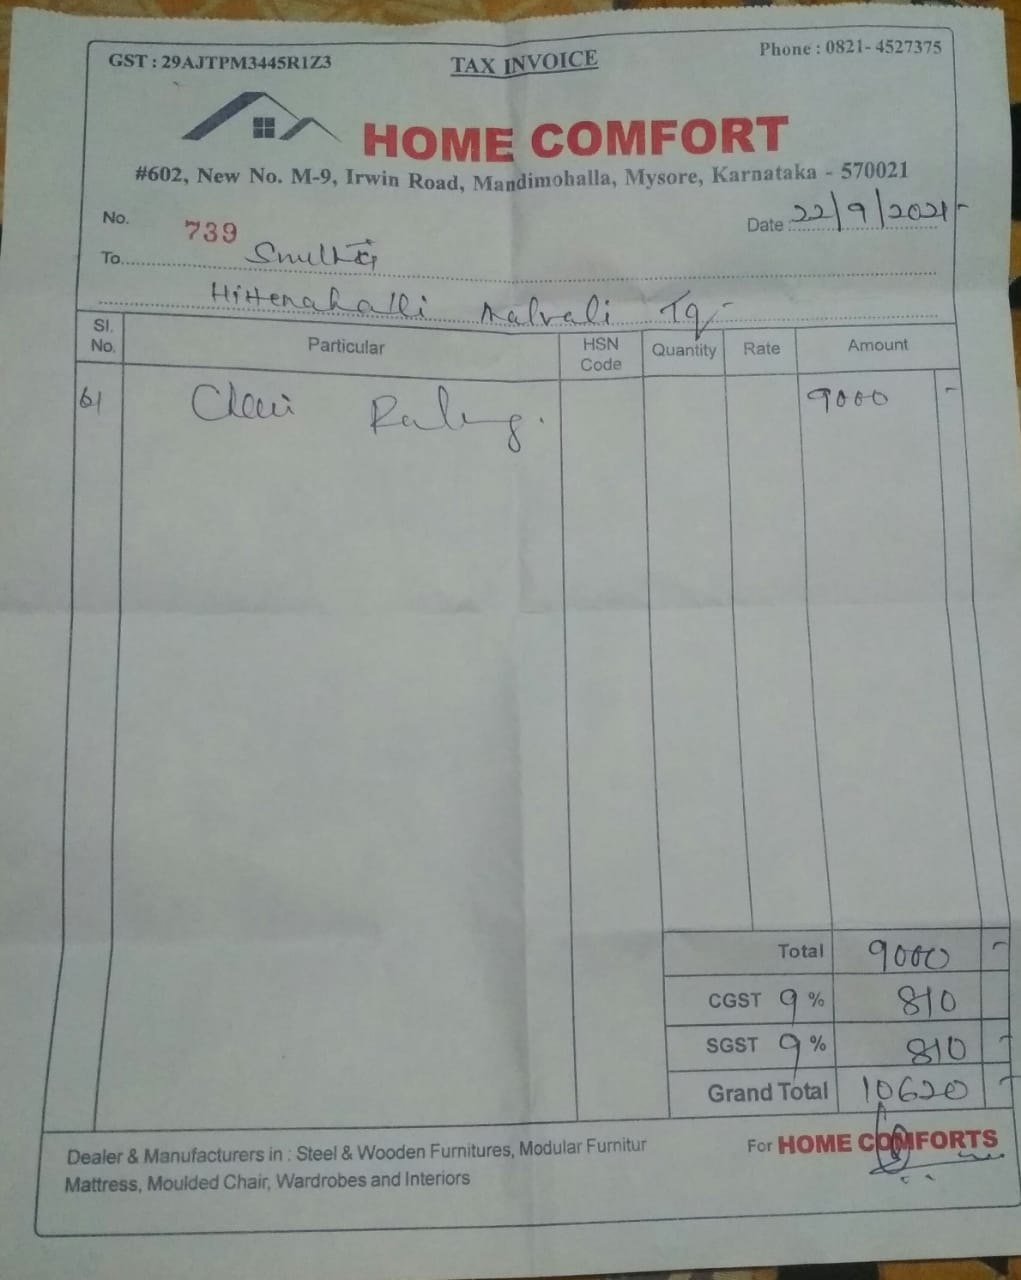 GST : 29AJTPM3445R1Z3 TAX INVOICE Phone : 0821- 4527375
HOME COMFORT
#602, New No. M-9, Irwin Road, Mandimohalla, Mysore, Karnataka - 570021
No. 739 Date 22/9/2021-
To
Hittenahalli Malvali Tq-
Sl. No. Particular HSN Code Quantity Rate Amount
9000 -
Total 9000 -
CGST 9 % 810
SGST 9 % 810 -
Grand Total 10620 -
Dealer & Manufacturers in : Steel & Wooden Furnitures, Modular Furnitur For HOME COMFORTS
Mattress, Moulded Chair, Wardrobes and Interiors